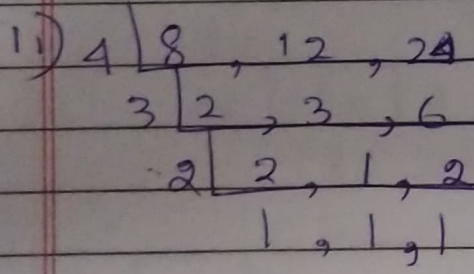 11) 4 | 8 , 12 , 24
3 | 2 , 3 , 6
2 | 2 , 1 , 2
1 , 1 , 1